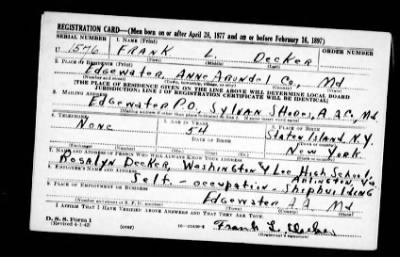 REGISTRATION CARD—(Men born on or after April 28, 1877 and on or before February 16, 1897)
SERIAL NUMBER 1. NAME (Print) ORDER NUMBER
U 1576 FRANK L. DECKER
2. PLACE OF RESIDENCE (Print)
Edgewater, Anne Arundel Co, Md
(Number and street)
[THE PLACE OF RESIDENCE GIVEN ON THE LINE ABOVE WILL DETERMINE LOCAL BOARD
JURISDICTION; LINE 2 OF REGISTRATION CERTIFICATE WILL BE IDENTICAL]
3. MAILING ADDRESS
Edgewater P.O., Sylvan Shores, A.A. Co, Md.
4. TELEPHONE 5. AGE IN YEARS 6. PLACE OF BIRTH
None 54 Staten Island, N.Y.
New York
7. NAME AND ADDRESS OF PERSON WHO WILL ALWAYS KNOW YOUR ADDRESS
Rosalyn Decker, Washington & Lee High School,
Arlington, Va
8. EMPLOYER'S NAME AND ADDRESS
Self - occupation - Shipbuilding
9. PLACE OF EMPLOYMENT OR BUSINESS
Edgewater A.A. Md
I AFFIRM THAT I HAVE VERIFIED ABOVE ANSWERS AND THAT THEY ARE TRUE.
D. S. S. Form 1
(Revised 4-1-42) (over)
Frank L. Decker